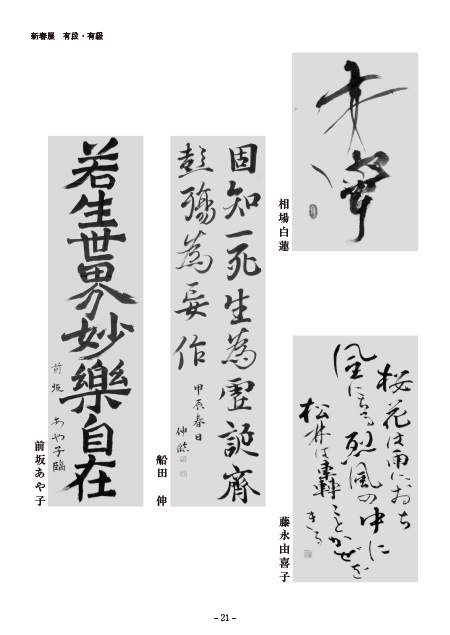 新春展　有段・有級
相場白蓮
桜花は雨におち
風にちる烈風の中に
松林は
かぜを
きる
藤永由喜子
固知一死生為虚誕齊
彭殤為妄作
甲辰春日
伸臨
船田　伸
若生世界妙樂自在
前坂 あや子臨
前坂あや子
- 21 -